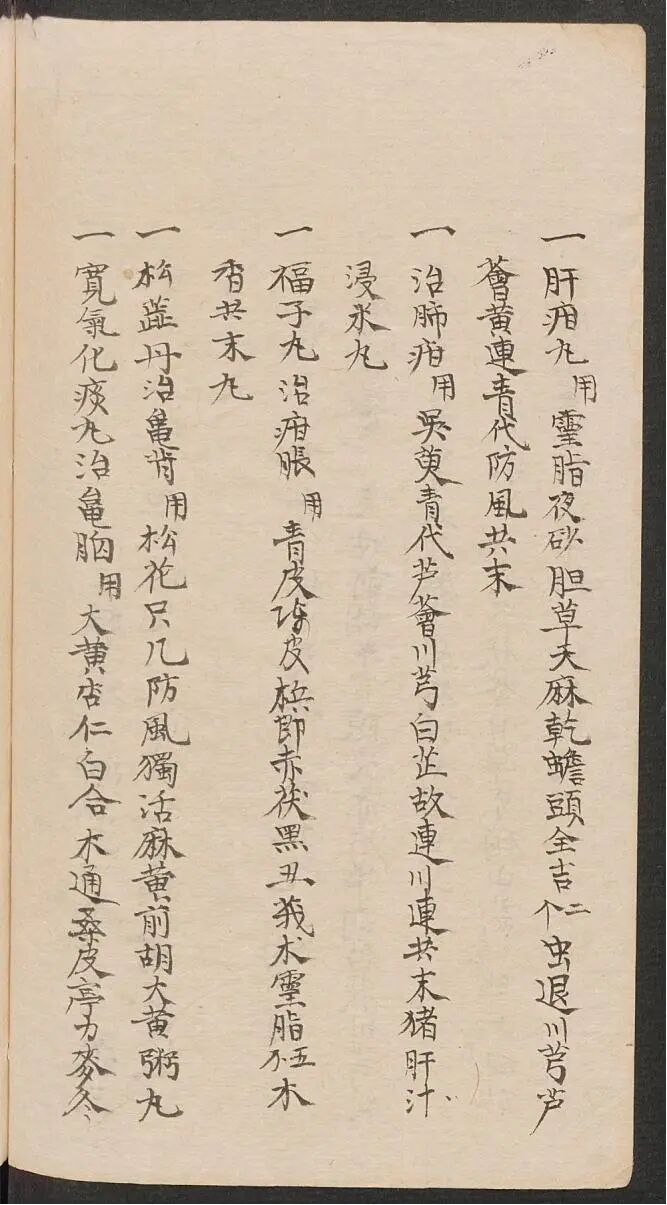 一肝疳九用靈脂夜砂胆草天麻乾蟾頭全吉仁个虫退川芎芦
薈黄連青代防風共末
一治肺疳用吳萸青代芦薈川芎白芷故連川連共末猪肝汁
浸米九
一福子九治疳脹用青皮陳皮梹郎赤茯黑丑莪术靈脂五不木
香共末九
一松蕋丹治龜背用松花只几防風獨活麻黄前胡大黄粥丸
一寬氣化痰九治龜胸用大黄杏仁白合木通桑皮亭力麥冬